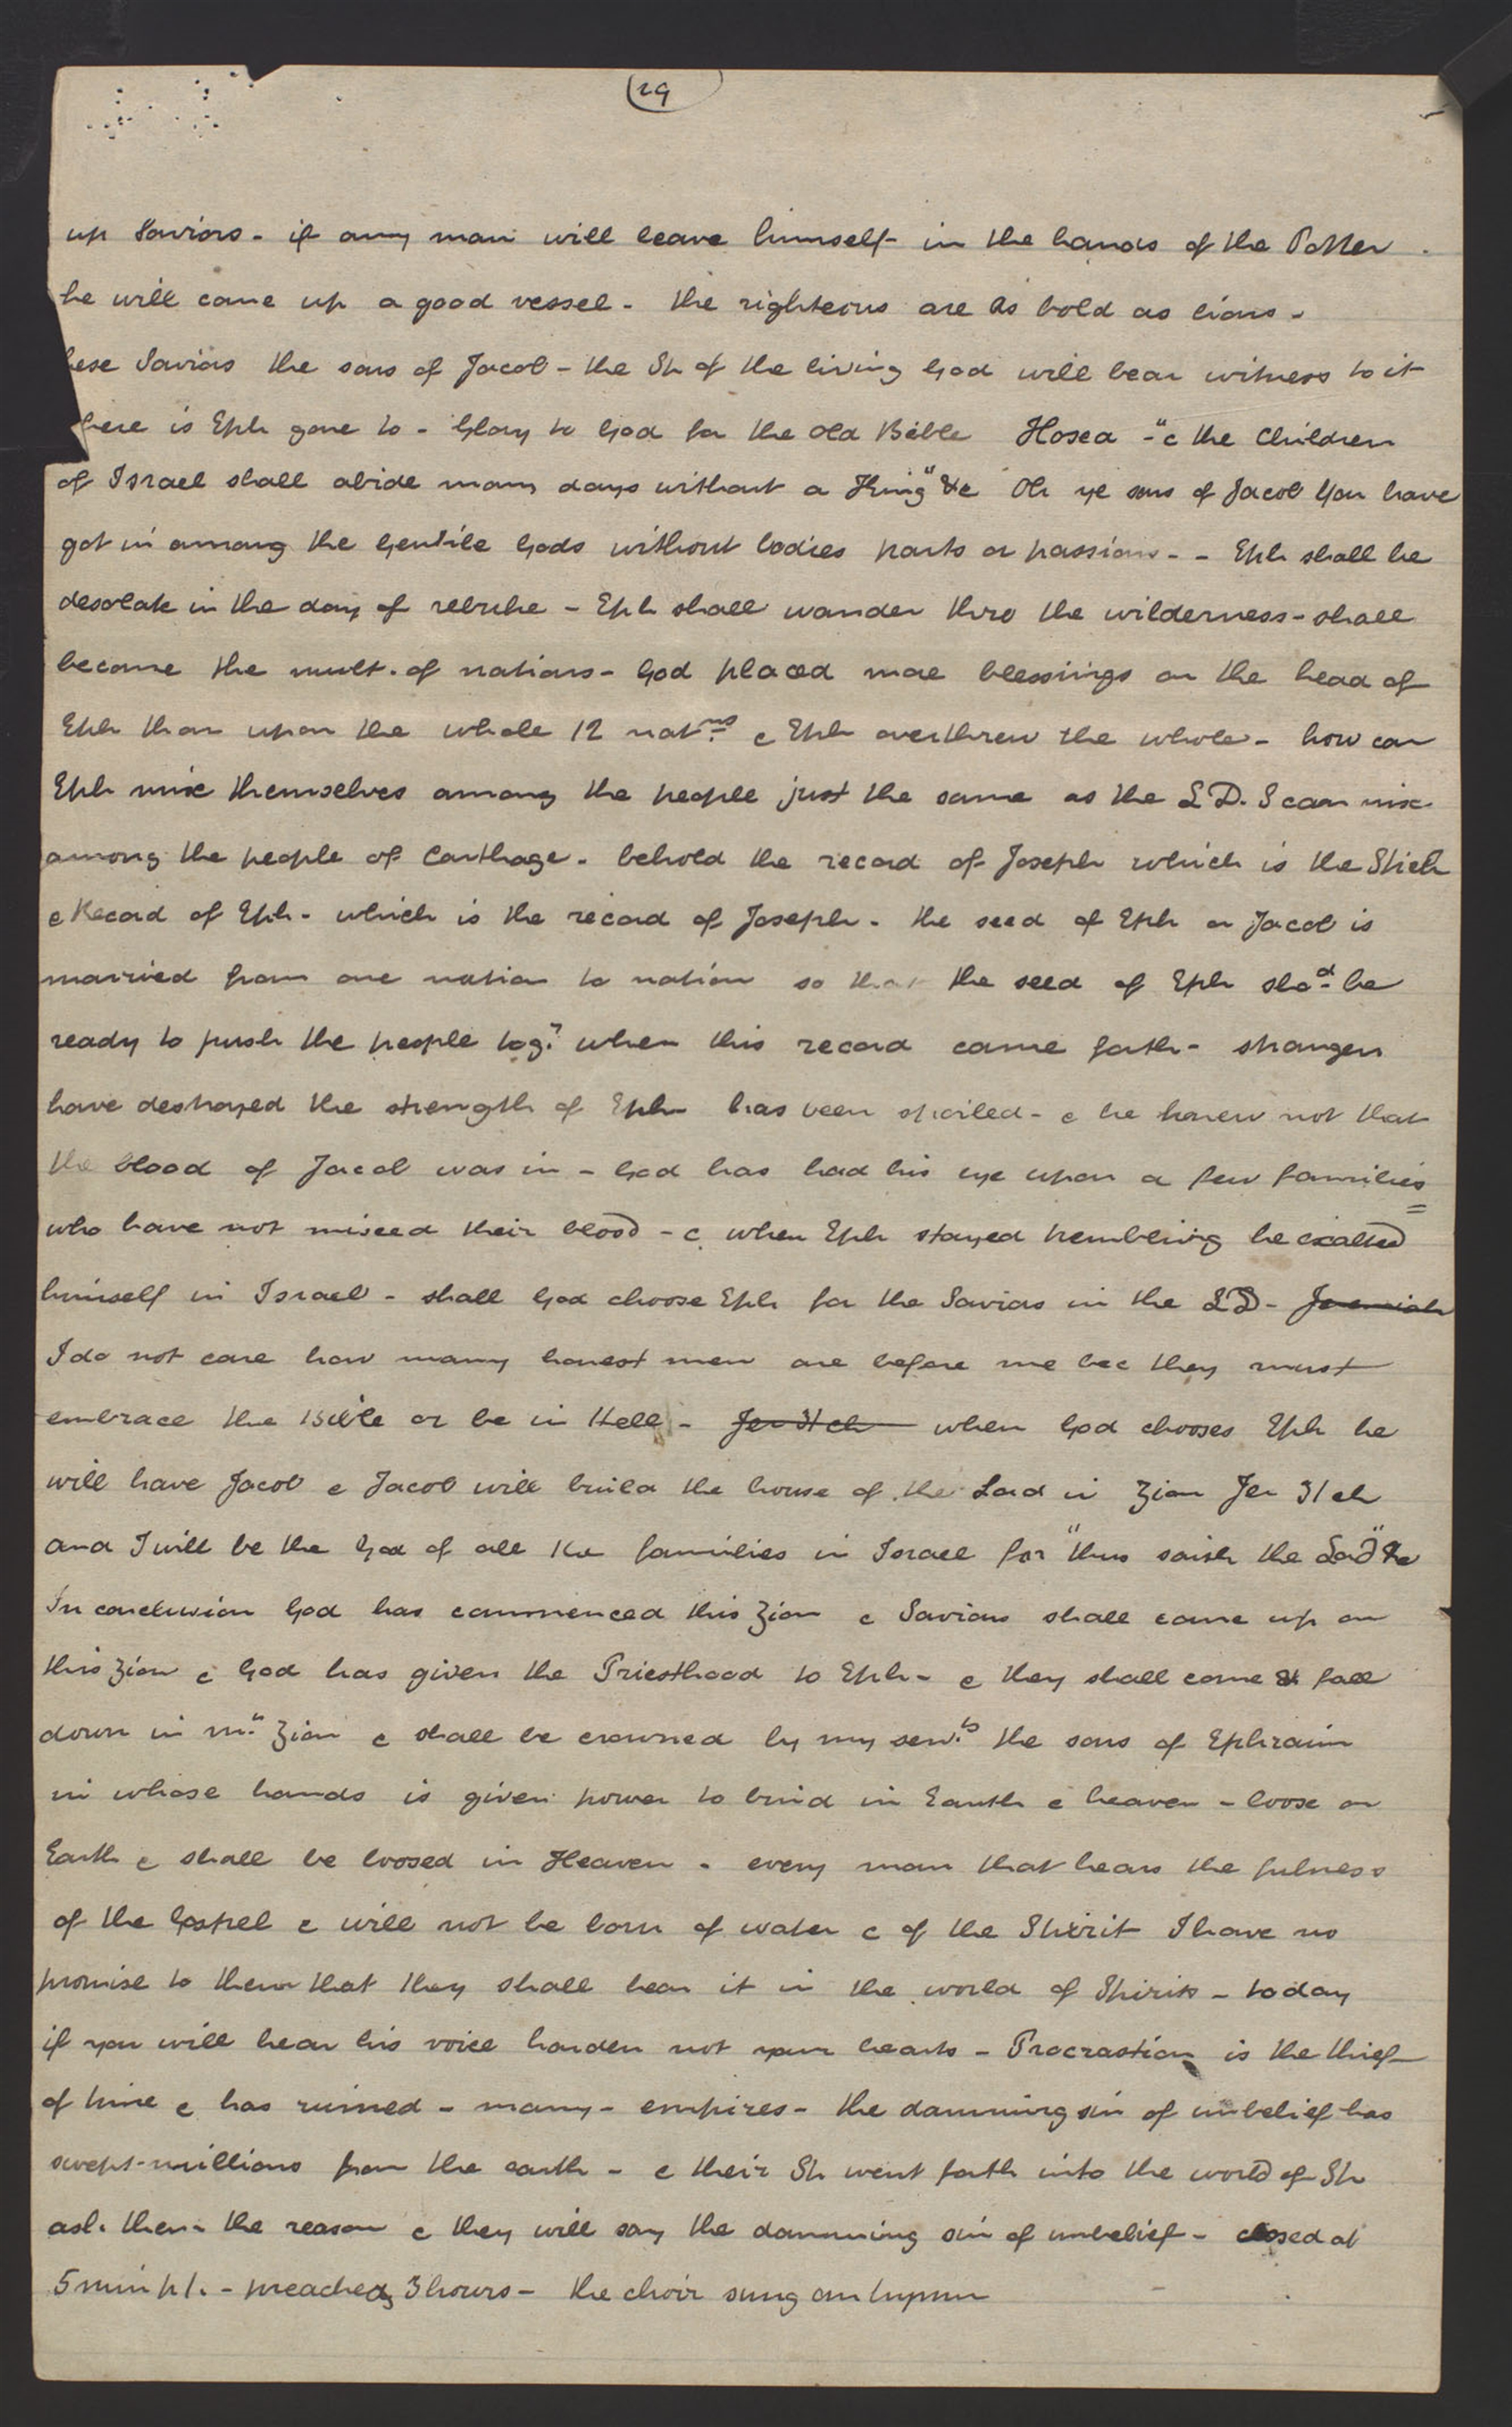 29
up Saviors - if any man will leave himself in the hands of the Potter
he will come up a good vessel - the righteous are as bold as lions -
hese Saviors the sons of Jacob - the Sp of the living God will bear witness to it
here is Eph gone to - Glory to God for the old Bible Hosea - "& the Children
of Israel shall abide many days without a King" &c Oh ye sons of Jacob you have
got in among the Gentile Gods without bodies parts or passions - - Eph shall be
desolate in the day of rebuke - Eph shall wander thro the wilderness - shall
become the mult. of nations - God placed more blessings on the head of
Eph than upon the whole 12 natns & Eph overthrew the whole - how can
Eph mix themselves among the people just the same as the L D. S can mix
among the people of Carthage - behold the record of Joseph which is the Stick
& Record of Eph - which is the record of Joseph - the seed of Eph or Jacob is
married from one nation to nation so that the seed of Eph shod be
ready to push the people togr when this record came forth - strangers
have destroyed the strength of Eph has been spoiled - & he knew not that
the blood of Jacob was in - God has had his eye upon a few families
who have not mixed their blood - & when Eph stayed trembling he exalted
himself in Israel - shall God choose Eph for the Saviors in the LD - Jeremiah
I do not care how many honest men are before me bec they must
embrace the Bible or be in Hell - Jer 31 ch when God chooses Eph he
will have Jacob & Jacob will build the house of the Lord in Zion Jer 31 ch
and I will be the God of all the families in Israel for "thus saith the Lord" &c
In conclusion God has commenced this Zion & Saviors shall come up on
this Zion & God has given the Priesthood to Eph - & they shall come & fall
down in mt Zion & shall be crowned by my servts the sons of Ephraim
in whose hands is given power to bind in Earth & heaven - loose on
Earth & shall be loosed in Heaven - every man that hears the fulness
of the Gospel & will not be born of water & of the Spirit I have no
promise to them that they shall hear it in the world of Spirits - today
if you will hear his voice harden not your hearts - Procrastion is the thief
of time & has ruined - many - empires - the damning sin of unbelief has
swept - millions from the earth - & their Sp went forth into the world of Sp
ask them the reason & they will say the damning sin of unbelief - closed at
5 min p 1. - preached 3 hours - the choir sung an hymn